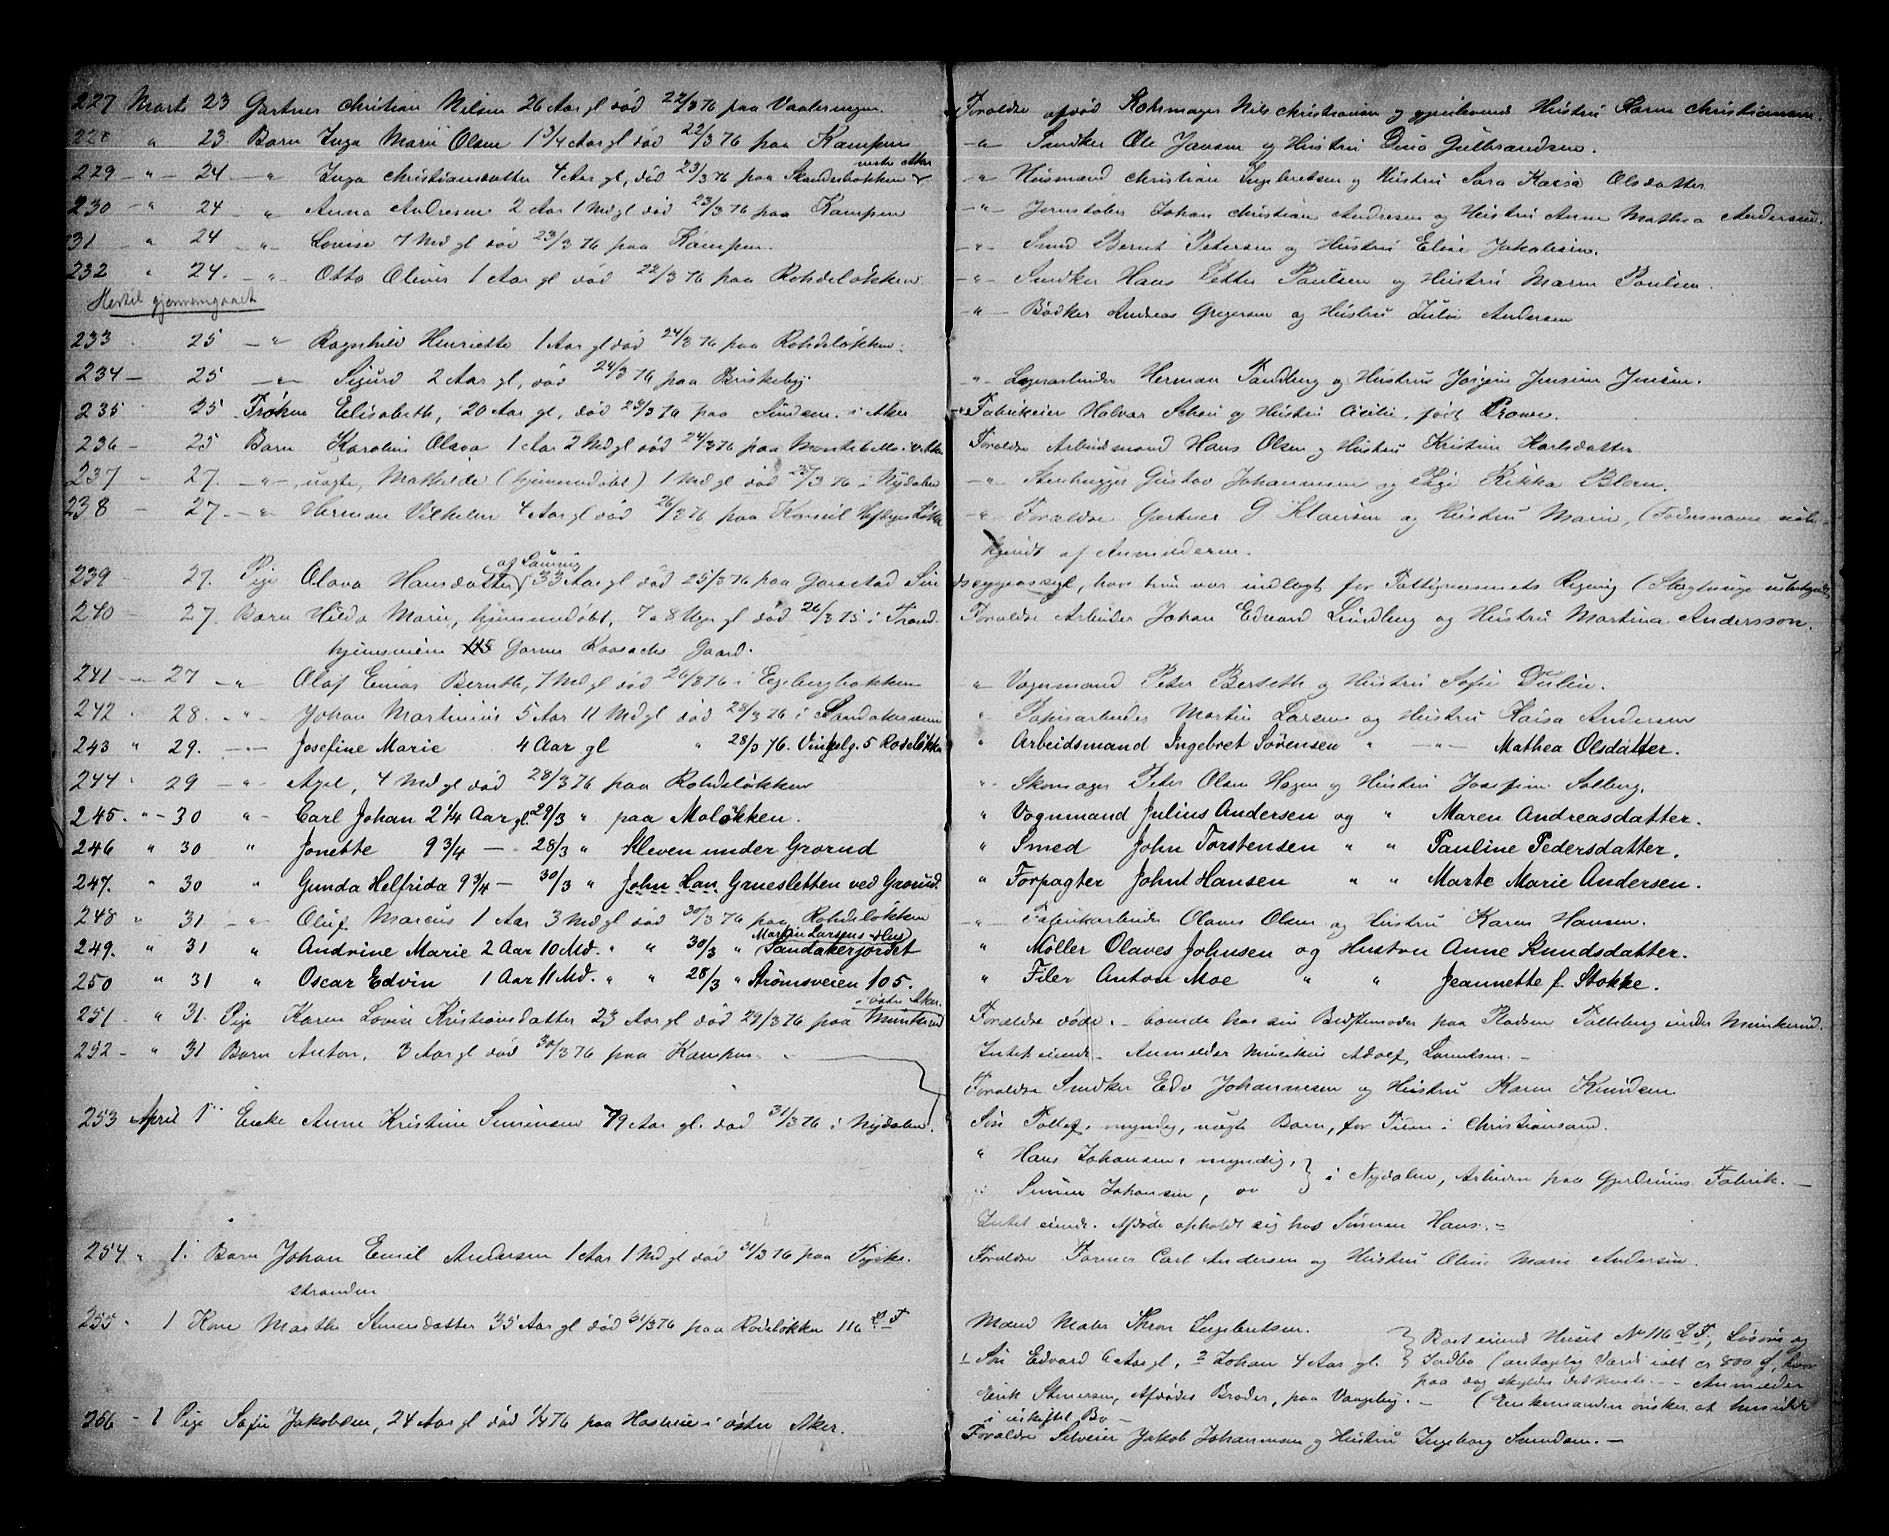 227 Marts 23 Gartner Christian Nilsen 26 Aar gl død 22/3 76 paa Vaaleringen.
228 " 23. Barn Inga Marie Olsen 1 3/4 Aar gl død 22/3 76 paa Kampen
vestre Aker
229 - " - 24 - " Inga Christiansdatter 4 Aar gl, død 23/3 76 paa
230 - " 24 - " Anna Andresen 2 Aar 1 Md gl død 23/3 76 paa Kampen
31 " 24 - " Lovise 7 Md gl død 23/3 76 paa Kampen.
232 " 24. - " Otto Oliver 1 Aar gl død 22/3 76 paa Rohdeløkken.
Hertil gjennemgaaet
233 25 - " Ragnhild Henriette 1 Aar gl død 24/3 76 paa Rohdeløkken.
234 - 25 - " - Sigurd 2 Aar gl, død 24/3 76 paa Briskeby.
235 25 Frøken Elisabeth, 20 Aar gl, død 23/3 76 paa Sinsen i Aker
236 - 25 Barn Karoline Olava 1 Aar 2 Md gl død 24/3 76 paa Montebello i
237 - 27. - " - uægte, Mathilde (hjemmedøbt) 1 Md gl død 25/3 76 i Nydalen
238 - 27. - " Herman Vilhelm 4 Aar gl død 26/3 76 paa Konsul Heftyes Løkke
af Lønnig
239 - 27. Pige Olava Hansdatter, 33 Aar gl død 25/3 76 paa Gaustad Sin
240 - 27. Barn Hilda Marie, hjemmedøbt, 7 a 8 Uger gl død 26/3 75 i Trond
hjemsveien Garver Gaard.
241 - " - 27 - " Olaf Einar Berseth, 7 Md gl død 26/3 76 i Egebergløkken
242 " 28. - " - Johan Martinius 5 Aar 11 Md gl død 28/3 76 i
243 " 29. - " - Josefine Marie 4 Aar gl " 28/3 76. Vinkelg. 5 Rodeløkken
244 " 29 - " - Axel, 4 Md gl død 28/3 76 paa Rohdeløkken
245. " - 30 " Carl Johan 2 1/4 Aar gl. 29/3 " paa Moløkken.
246 " 30 " Jonette 9 3/4 - 28/3 " Kleven under Grorud
247. " 30 " Gunda Helfrida 9 3/4 - 30/3 " John Han. Gruesletten ved Grorud.
248 " 31 - " Oluf Marcus 1 Aar 3 Md gl død 30/3 76 paa Rohdeløkken
Martin Larsens Hus
249. " 31 " Andrine Marie 2 Aar 10 Md. " " 30/3 " Sandakerjordet
250 " 31 " Oscar Edvin 1 Aar 11 Md. " " 28/3 " Strømsveien 105.
i østre Aker.
251. " 31. Pige Karen Lovise Kristiansdatter 23 Aar gl død 29/3 76 paa Munkerud
252 - " 31 Barn Anton, 3 Aar gl død 30/3 76 paa Kampen.
253 April 1 Enke Anne Kristine Simensen 79 Aar gl. død 31/3 76 i Nydalen.
254 " 1. Barn Johan Emil Andersen 1 Aar 1 Md gl død 31/3 76 paa Tyske-
stranden
255 " 1 Kone Marthe Stenersdatter 35 Aar gl død 31/3 76 paa Rodeløkken 116 L. F
256 - 1 Pige Sofie Jakobsen, 24 Aar gl død 1/4 76 paa i østre Aker.
Forældre afdød Nils Christiansen og gjenlevende Hustru Karen Christiansen.
- " - Snedker Ole Jansen og Hustru Dina Gulbrandsen.
- " - Husmand Christian Ingebretsen og Hustru Sara Kaisa Olsdatter
- " - Jernstøber Johan Christian Andresen og Hustru Anne Mathea Andersen.
- " - Smed Bernt Petersen og Hustru Elise Jakobsen.
- " - Snedker Hans Petter Paulsen og Hustru Maren Paulsen.
- " - Bødker Andreas Gregersen og Hustru Julie Andersen
" - Herman Sandberg og Hustru Jensine Jensen.
Fabrikeier Halvor Schou og Hustru Cicilie, født
Forældre Arbeidsmand Hans Olsen og Hustru Kristine Karlsdatter
- " - Stenhugger Gustav Johannesen og Pige Rikka Blom.
- " - Forældre Gartner G Klausen og Hustru Marie, (Fødernavn ube-
kjendt af Anmelderen.
dssygeasyl, hvor hun var indlagt for Fattigvæsenets Regning (Slægtninge ubekjendt)
Forældre Arbeider Johan Edvard Lindberg og Hustru Martina Andersson.
" - Vognmand Peter Berseth og Hustru Sofie Tulin.
" Martin Larsen og Hustru Kaisa Andersen
" Arbeidsmand Ingebret Sørensen " - " - Mathea Olsdatter.
" Skomager Peter Olsen Hagen og Hustru Josefine Solberg.
" Vognmand Julius Andersen og " Maren Andreasdatter.
" Smed John Torstensen " " Pauline Pedersdatter.
" Forpagter John Hansen " " Marte Marie Andersen.
- " - Fabrikarbeider Olaus Olsen og Hustru Karen Hansen.
" Møller Olaves Johnsen og Hustru Anne Knudsdatter.
" Filer Anton Moe " " Jeannette f. Stokke.
Forældre døde. - boende hos sin Bedstemoder paa Pladsen under Munkerud.
Intet eiende. Anmelder Musikus Adolf Lorentsen. -
Forældre Snedker Edv Johannesen og Hustru Karen Knudsen
Søn Tollef, myndig, uægte Barn, for Tiden i Christiansand.
" Hans Johansen, myndig, } i Nydalen, Arbeidere paa Gjerdrums Fabrik. -
" Simen Johansen, do
Intet eiende. Afdøde opholdt sig hos Sønnen Hans. -
Forældre Former Carl Andersen og Hustru Oline Marie Andersen.
Mand Maler Ingebretsen.
1 Søn Edvard 6 Aar gl, 2 Johan 4 Aar gl. } Boet eiende Huset No 116 L. F, Løsøre og
Indbo (antagelig Værdi ialt er 800 , hvor
paa dog skyldes det meste. - - Anmelder
Erik Stenersen, Afdødes Broder, paa Vaageby. - (Enkemanden ønsker at hensidde
i uskiftet Bo -
Forældre Selveier Jakob Johannesen og Hustru Ingeborg Samdsen. -